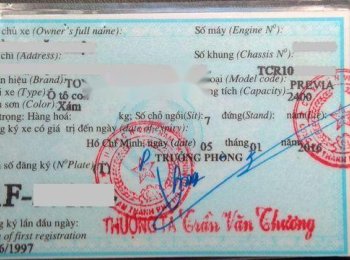 chủ xe (Owner's full name):
Số máy (Engine Nº):
chỉ (Address):
Số khung (Chassis Nº):
TCR10
hiệu (Brand): TO
loại (Model code): PREVIA
xe (Type): Ô tô co
tích (Capacity): 2400
sơn (Color): Xám
trọng: Hàng hoá: kg; Số chỗ ngồi(Sit): 7 đứng(Stand): nằm(Lie):
ký xe có giá trị đến ngày (date of expiry):
Hồ Chí Minh, ngày (date) 05 tháng 01 năm 2016
TRƯỞNG PHÒNG
số đăng ký (NºPlate): (T)
F-
THƯỢNG TÁ Trần Văn Thương
ký lần đầu ngày:
of first registration
6/1997